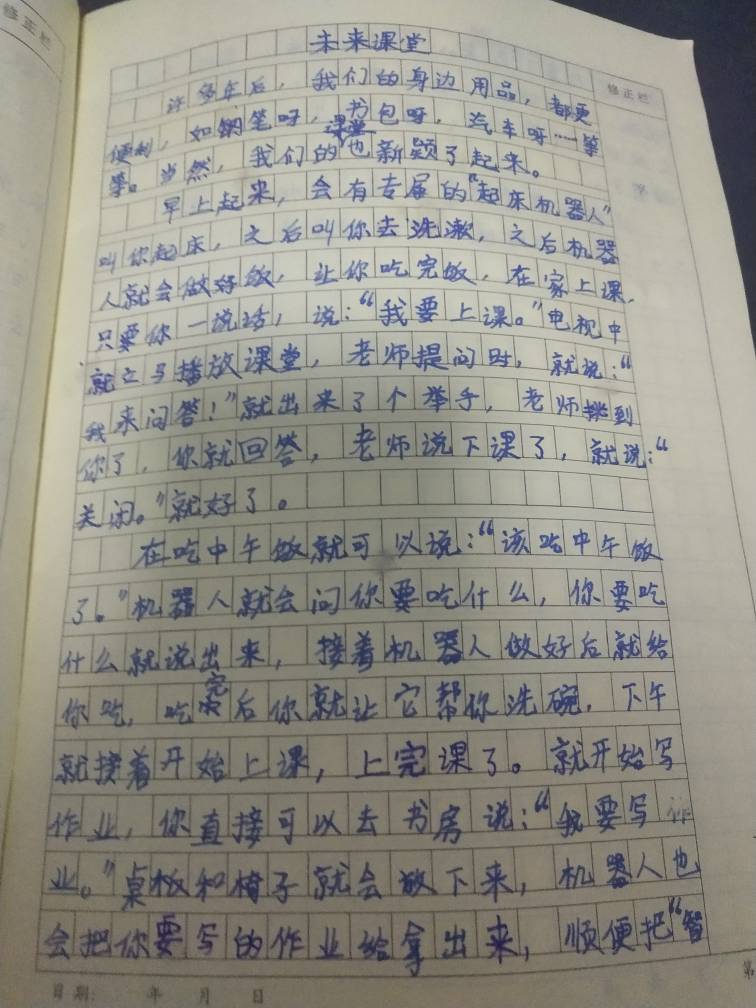 修正栏
未来课堂
修正栏
许多年后，我们的身边用品，都更
便利，如钢笔呀，书包呀，汽车呀……等
等。当然，我们的课堂也新颖了起来。
早上起来，会有专属的“起床机器人”
叫你起床，之后叫你去洗漱，之后机器
人就会做好饭，让你吃完饭，在家上课，
只要你一说话，说：“我要上课。”电视中
就立马播放课堂，老师提问时，就说：“
我来问答！”就出来了个举手，老师挑到
你了，你就回答，老师说下课了，就说：“
关闭。”就好了。
在吃中午饭就可以说：“该吃中午饭
了。”机器人就会问你要吃什么，你要吃
什么就说出来，接着机器人做好后就给
你吃，吃完后你就让它帮你洗碗，下午
就接着开始上课，上完课了。就开始写
作业，你直接可以去书房说：“我要写作
业。”桌板和椅子就会放下来，机器人也
会把你要写的作业给拿出来，顺便把“智
日期： 年 月 日
第